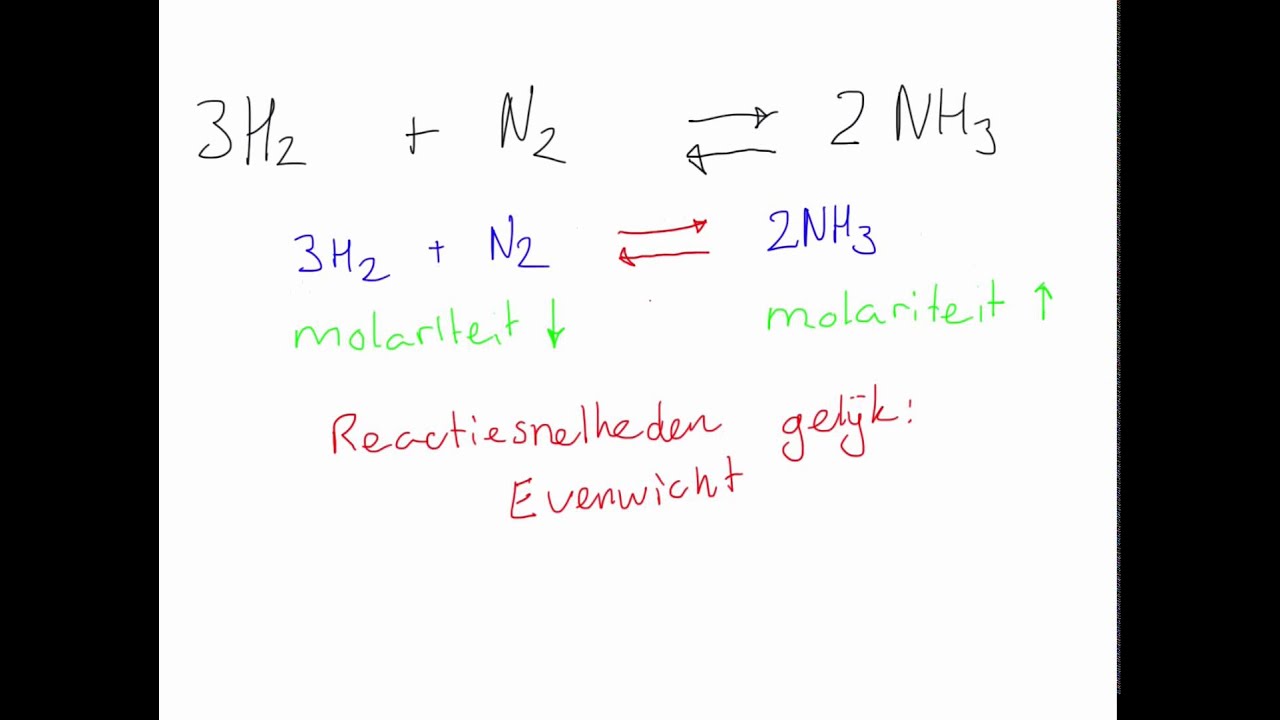 3H₂ + N₂ ⇄ 2 NH₃
3H₂ + N₂ ⇄ 2NH₃
molariteit ↓ molariteit ↑
Reactiesnelheden gelijk:
Evenwicht